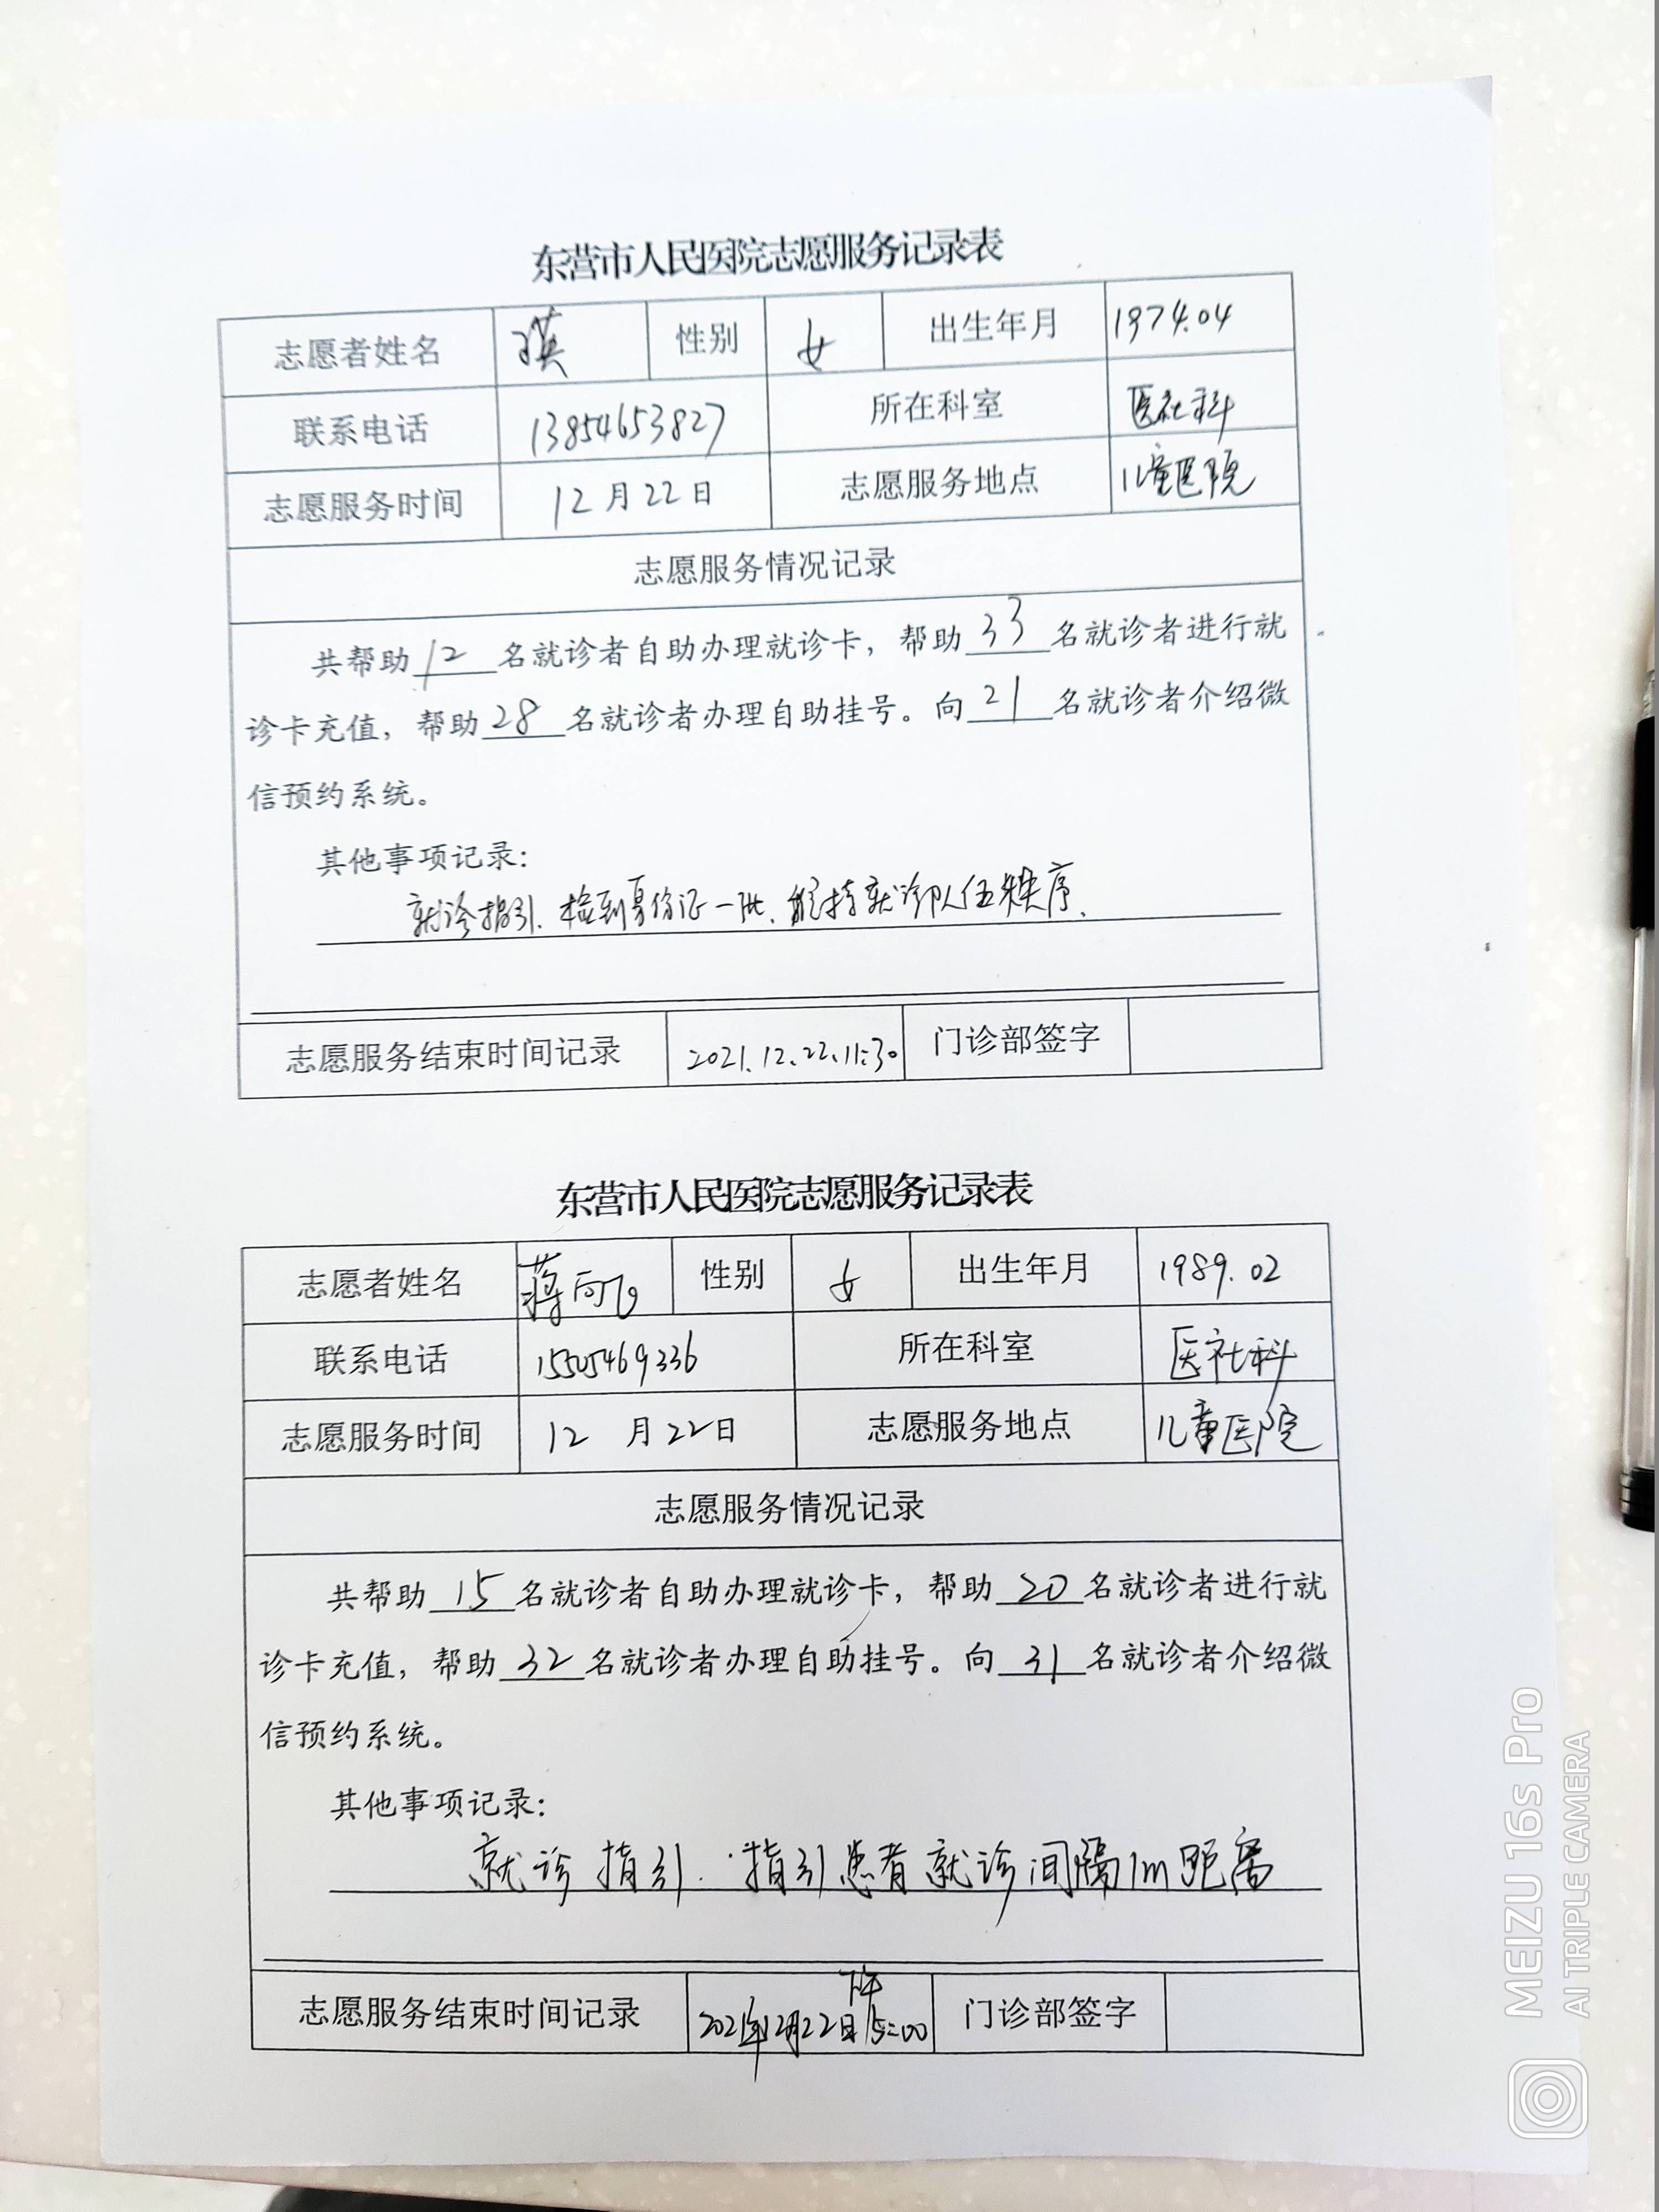 东营市人民医院志愿服务记录表
志愿者姓名 性别 女 出生年月 1974.04
联系电话 13854653827 所在科室 医社科
志愿服务时间 12月22日 志愿服务地点 儿童医院
志愿服务情况记录
共帮助12名就诊者自助办理就诊卡，帮助33名就诊者进行就
诊卡充值，帮助28名就诊者办理自助挂号。向21名就诊者介绍微
信预约系统。
其他事项记录：
就诊指引、检到身份证一张、维持就诊队伍秩序、
志愿服务结束时间记录 2021.12.22.11:30 门诊部签字
东营市人民医院志愿服务记录表
志愿者姓名 蒋 性别 女 出生年月 1989.02
联系电话 15505469336 所在科室 医社科
志愿服务时间 12月22日 志愿服务地点 儿童医院
志愿服务情况记录
共帮助15名就诊者自助办理就诊卡，帮助20名就诊者进行就
诊卡充值，帮助32名就诊者办理自助挂号。向31名就诊者介绍微
信预约系统。
其他事项记录：
就诊指引.指引患者就诊间隔1m距离
志愿服务结束时间记录 2021年12月22日下午15:00 门诊部签字
MEIZU 16s Pro
AI TRIPLE CAMERA